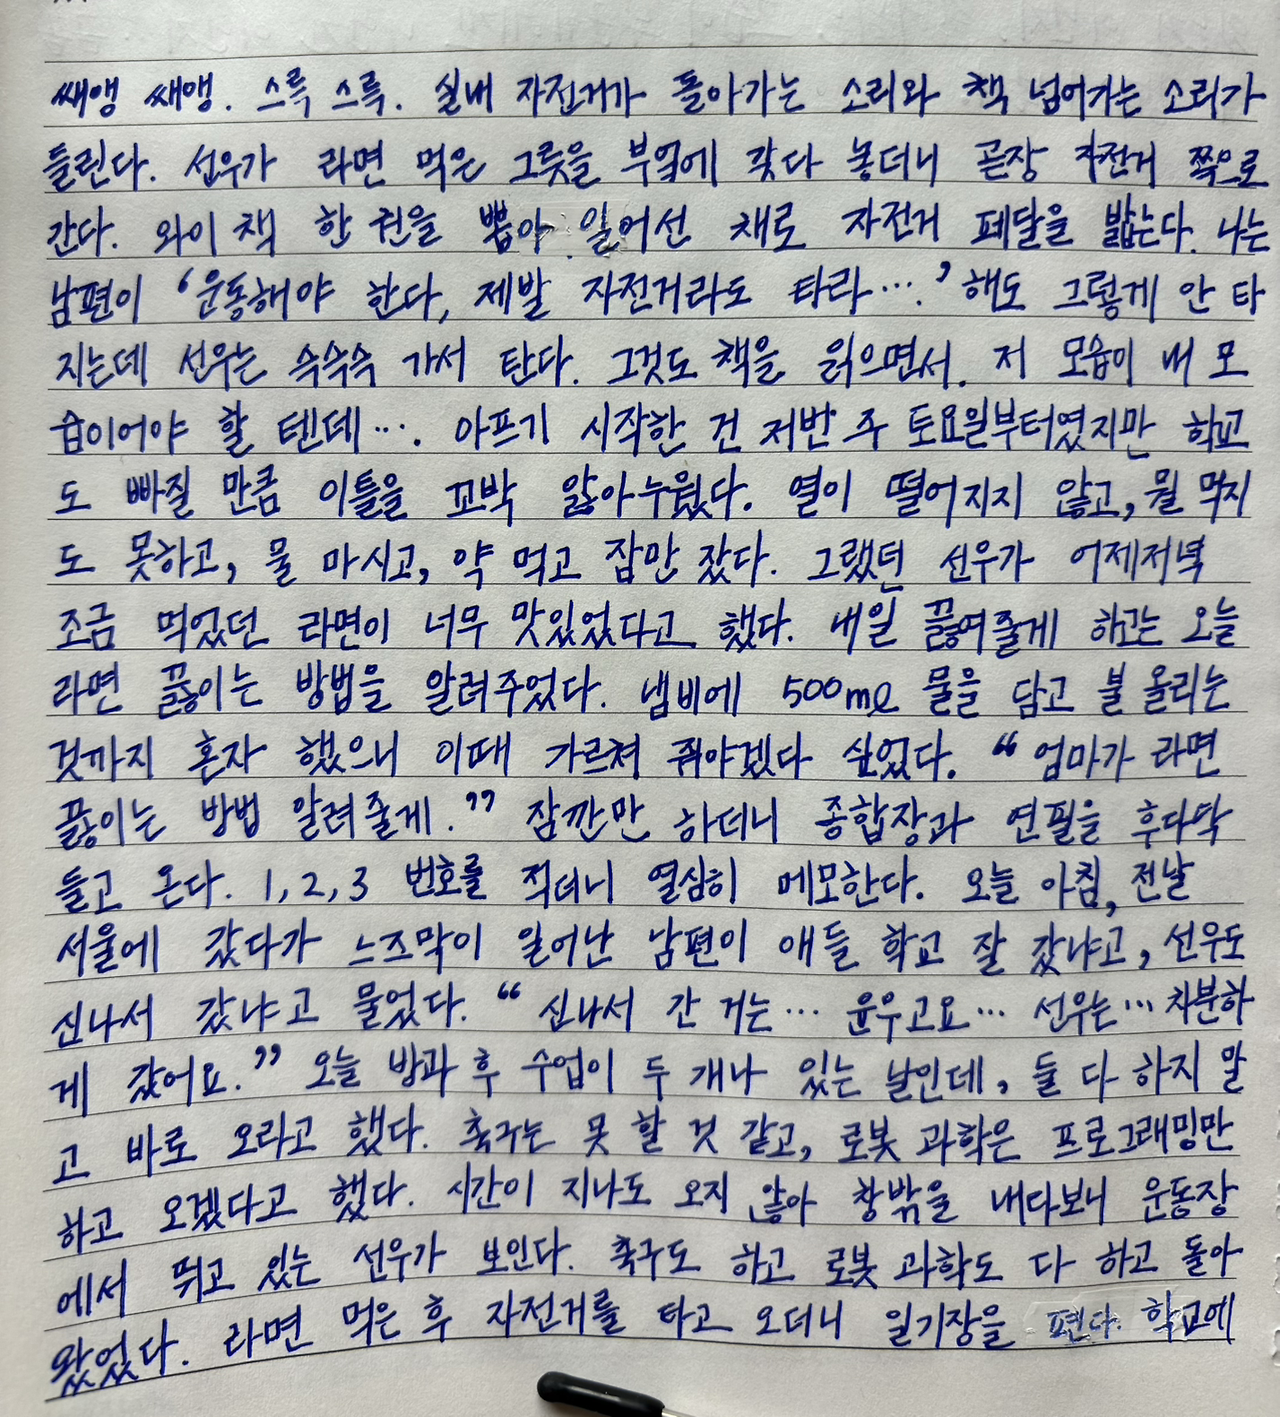 쌔앵 쌔앵. 스륵 스륵. 실내 자전거가 돌아가는 소리와 책 넘어가는 소리가
들린다. 선우가 라면 먹은 그릇을 부엌에 갖다 놓더니 곧장 자전거 쪽으로
간다. 와이 책 한 권을 뽑아 일어선 채로 자전거 페달을 밟는다. 나는
남편이 ‘운동해야 한다, 제발 자전거라도 타라….’ 해도 그렇게 안 타
지는데 선우는 슥슥슥 가서 탄다. 그것도 책을 읽으면서. 저 모습이 내 모
습이어야 할 텐데…. 아프기 시작한 건 저번 주 토요일부터였지만 학교
도 빠질 만큼 이틀을 꼬박 앓아누웠다. 열이 떨어지지 않고, 뭘 먹지
도 못하고, 물 마시고, 약 먹고 잠만 잤다. 그랬던 선우가 어제저녁
조금 먹었던 라면이 너무 맛있었다고 했다. 내일 끓여줄게 하고는 오늘
라면 끓이는 방법을 알려주었다. 냄비에 500ml 물을 담고 불 올리는
것까지 혼자 했으니 이때 가르쳐 줘야겠다 싶었다. “엄마가 라면
끓이는 방법 알려줄게.” 잠깐만 하더니 종합장과 연필을 후다닥
들고 온다. 1, 2, 3 번호를 적더니 열심히 메모한다. 오늘 아침, 전날
서울에 갔다가 느즈막이 일어난 남편이 애들 학교 잘 갔냐고, 선우도
신나서 갔냐고 물었다. “신나서 간 거는… 윤우고요… 선우는… 차분하
게 갔어요.” 오늘 방과 후 수업이 두 개나 있는 날인데, 둘 다 하지 말
고 바로 오라고 했다. 축구는 못 할 것 같고, 로봇 과학은 프로그래밍만
하고 오겠다고 했다. 시간이 지나도 오지 않아 창밖을 내다보니 운동장
에서 뛰고 있는 선우가 보인다. 축구도 하고 로봇 과학도 다 하고 돌아
왔었다. 라면 먹은 후 자전거를 타고 오더니 일기장을 편다. 학교에